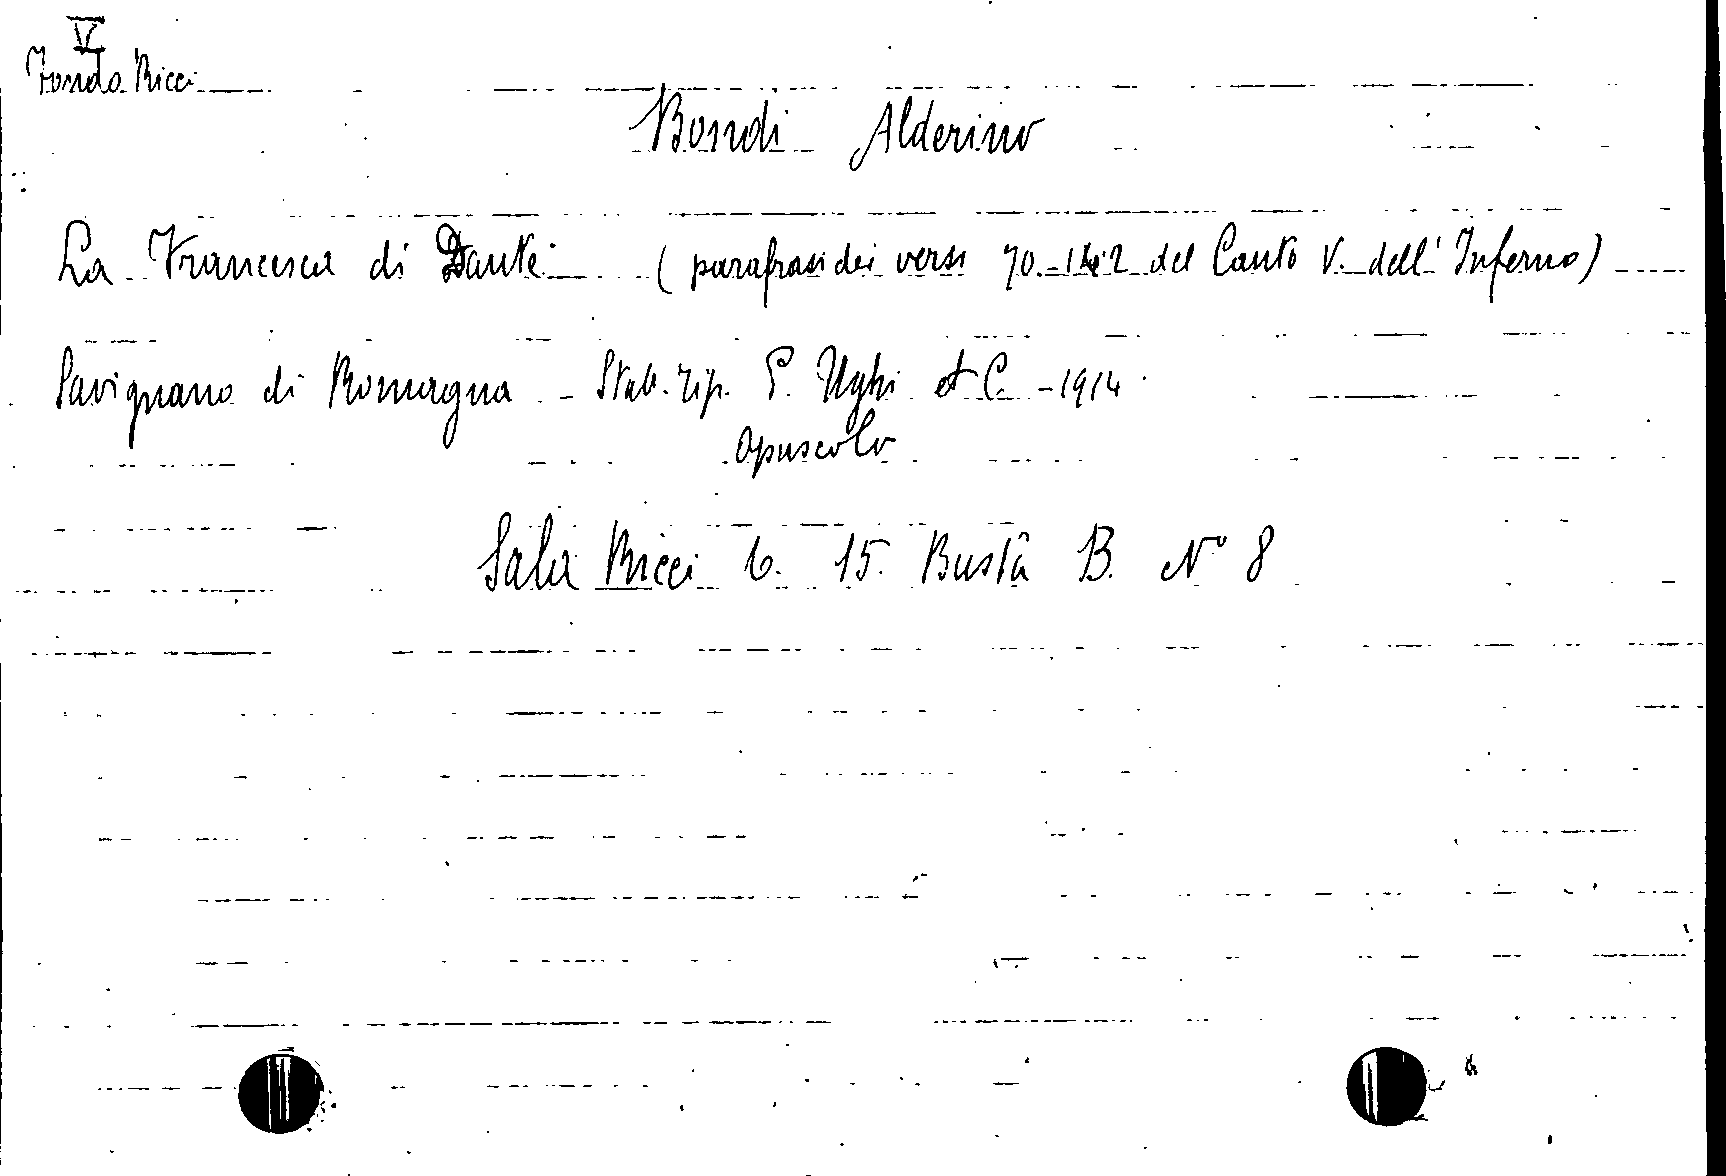 V
Fondo Ricci
Bondi Alderino
La Francesca di Dante (parafrasi dei versi 70-142 del Canto V. dell'Inferno)
Savignano di Romagna - Stab. Tip. P. Ughi et C. - 1914
opuscolo
Sala Ricci 6. 15. Busta B. N° 8